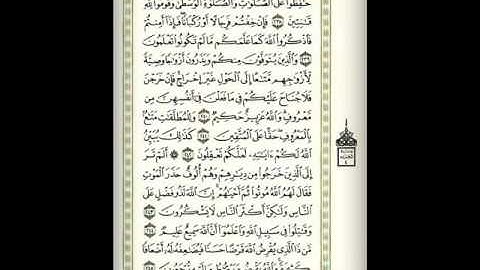 حَٰفِظُوا۟ عَلَى ٱلصَّلَوَٰتِ وَٱلصَّلَوٰةِ ٱلْوُسْطَىٰ وَقُومُوا۟ لِلَّهِ
قَٰنِتِينَ ﴿٢٣٨﴾ فَإِنْ خِفْتُمْ فَرِجَالًا أَوْ رُكْبَانًا فَإِذَآ أَمِنتُمْ
فَٱذْكُرُوا۟ ٱللَّهَ كَمَا عَلَّمَكُم مَّا لَمْ تَكُونُوا۟ تَعْلَمُونَ
﴿٢٣٩﴾ وَٱلَّذِينَ يُتَوَفَّوْنَ مِنكُمْ وَيَذَرُونَ أَزْوَٰجًا وَصِيَّةً
لِّأَزْوَٰجِهِم مَّتَٰعًا إِلَى ٱلْحَوْلِ غَيْرَ إِخْرَاجٍ فَإِنْ خَرَجْنَ
فَلَا جُنَاحَ عَلَيْكُمْ فِى مَا فَعَلْنَ فِىٓ أَنفُسِهِنَّ مِن
مَّعْرُوفٍ وَٱللَّهُ عَزِيزٌ حَكِيمٌ ﴿٢٤٠﴾ وَلِلْمُطَلَّقَٰتِ مَتَٰعٌۢ
بِٱلْمَعْرُوفِ حَقًّا عَلَى ٱلْمُتَّقِينَ ﴿٢٤١﴾ كَذَٰلِكَ يُبَيِّنُ
ٱللَّهُ لَكُمْ ءَايَٰتِهِۦ لَعَلَّكُمْ تَعْقِلُونَ ﴿٢٤٢﴾ ۞ أَلَمْ تَرَ
إِلَى ٱلَّذِينَ خَرَجُوا۟ مِن دِيَٰرِهِمْ وَهُمْ أُلُوفٌ حَذَرَ ٱلْمَوْتِ
فَقَالَ لَهُمُ ٱللَّهُ مُوتُوا۟ ثُمَّ أَحْيَٰهُمْ إِنَّ ٱللَّهَ لَذُو فَضْلٍ عَلَى
ٱلنَّاسِ وَلَٰكِنَّ أَكْثَرَ ٱلنَّاسِ لَا يَشْكُرُونَ ﴿٢٤٣﴾
وَقَٰتِلُوا۟ فِى سَبِيلِ ٱللَّهِ وَٱعْلَمُوٓا۟ أَنَّ ٱللَّهَ سَمِيعٌ عَلِيمٌ ﴿٢٤٤﴾
مَّن ذَا ٱلَّذِى يُقْرِضُ ٱللَّهَ قَرْضًا حَسَنًا فَيُضَٰعِفَهُۥ لَهُۥٓ أَضْعَافًا
كَثِيرَةً وَٱللَّهُ يَقْبِضُ وَيَبْصُۜطُ وَإِلَيْهِ تُرْجَعُونَ ﴿٢٤٥﴾